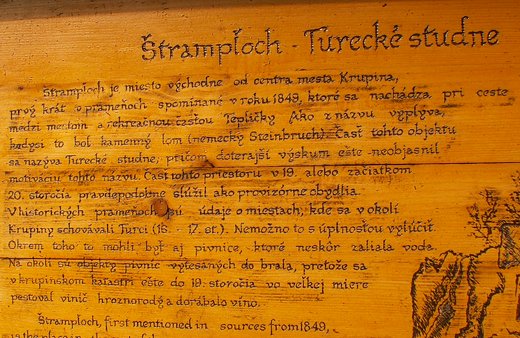 Štramploch - Turecké studne
Štramploch je miesto východne od centra mesta Krupina,
prvý krát v prameňoch spomínané v roku 1849, ktoré sa nachádza pri ceste
medzi mestom a rekreačnou časťou Tepličky. Ako z názvu vyplýva,
kedysi to bol kamenný lom (nemecký Steinbruch). Časť tohto objektu
sa nazýva Turecké studne, pričom doterajší výskum ešte neobjasnil
motiváciu tohto názvu. Časť tohto priestoru v 19. alebo začiatkom
20. storočia pravdepodobne slúžil ako provizórne obydlia.
V historických prameňoch sú údaje o miestach, kde sa v okolí
Krupiny schovávali Turci (16. - 17. st.). Nemožno to s úplnosťou vylúčiť.
Okrem toho to mohli byť aj pivnice, ktoré neskôr zaliala voda.
Na okolí sú objekty pivníc vytesaných do brala, pretože sa
v krupinskom katastri ešte do 19. storočia vo veľkej miere
pestoval vinič hroznorodý a dorábalo víno.
Štramploch, first mentioned in sources from 1849,
is the place in the east of